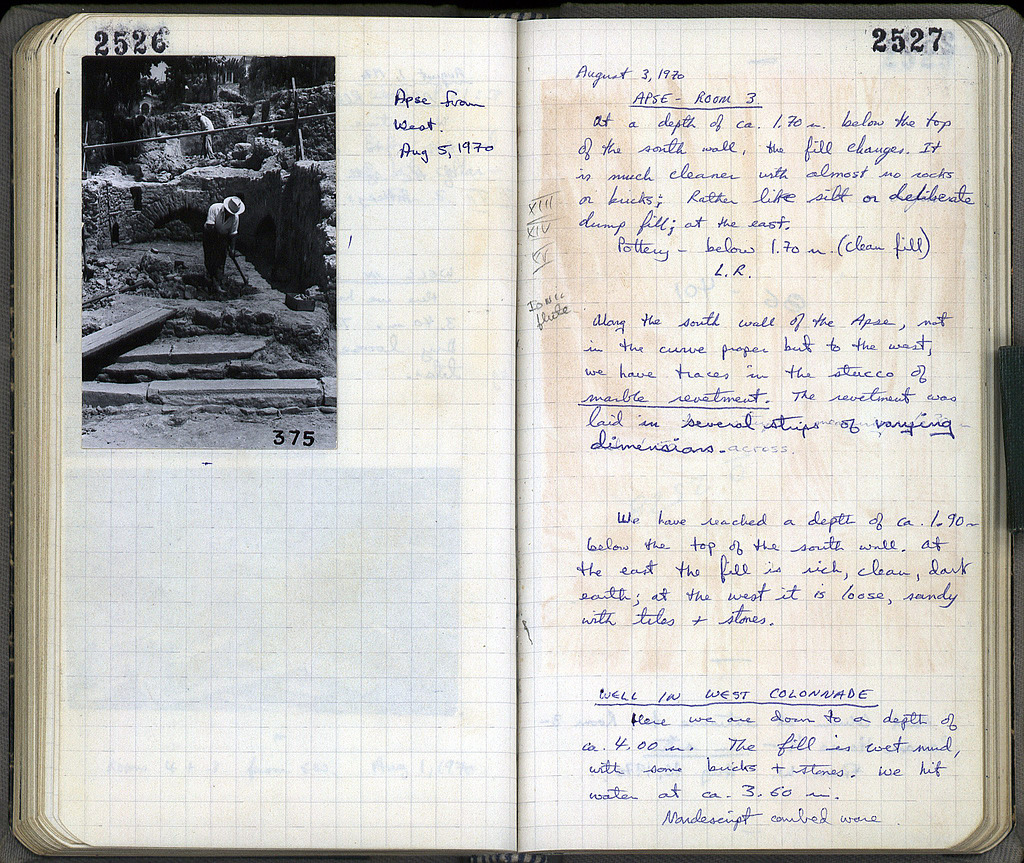 2526
Apse from
West.
Aug 5, 1970
375
2527
August 3, 1970
APSE - ROOM 3
At a depth of ca. 1.70 m. below the top
of the south wall, the fill changes. It
is much cleaner with almost no rocks
or bricks; Rather like silt or deliberate
dump fill; at the east.
Pottery - below 1.70 m. (clean fill)
L.R.
XIII
XIV
XV
Ionic
flute
Along the south wall of the Apse, not
in the curve proper but to the west,
we have traces in the stucco of
marble revetment. The revetment was
laid in several strips of varying
dimensions across.
We have reached a depth of ca. 1.90
below the top of the south wall. At
the east the fill is rich, clean, dark
earth; at the west it is loose, sandy
with tiles + stones.
WELL IN WEST COLONNADE
Here we are down to a depth of
ca. 4.00 m. The fill is wet mud,
with some bricks + stones. We hit
water at ca. 3.60 m.
Nondescript combed ware